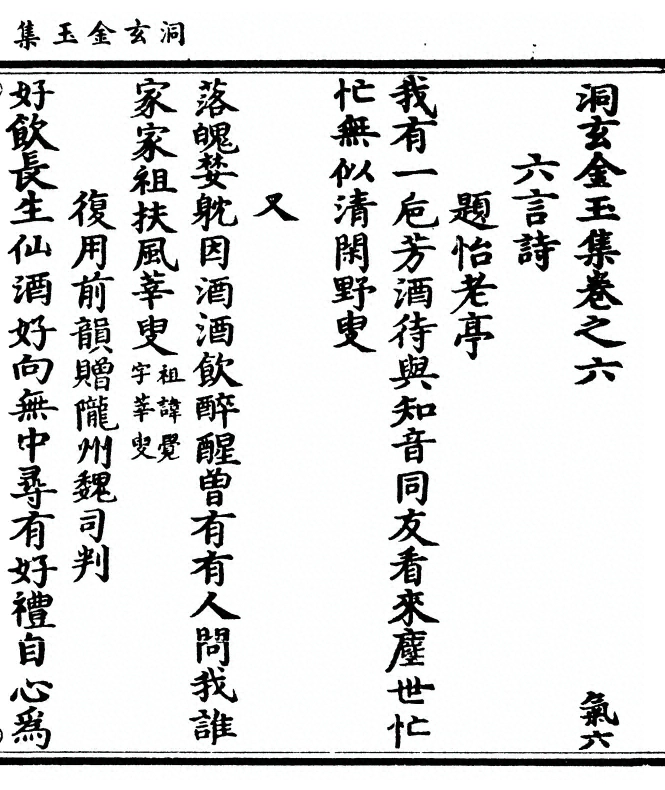 洞玄金玉集
洞玄金玉集卷之六
氣六
六言詩
題怡老亭
我有一卮芳酒待與知音同友看來塵世忙
忙無似清閑野叟
又
落魄婪躭因酒酒飲醉醒曾有有人問我誰
家家祖扶風莘叟祖諱覺字莘叟
復用前韻贈隴州魏司判
好飲長生仙酒好向無中尋有好禮自心為